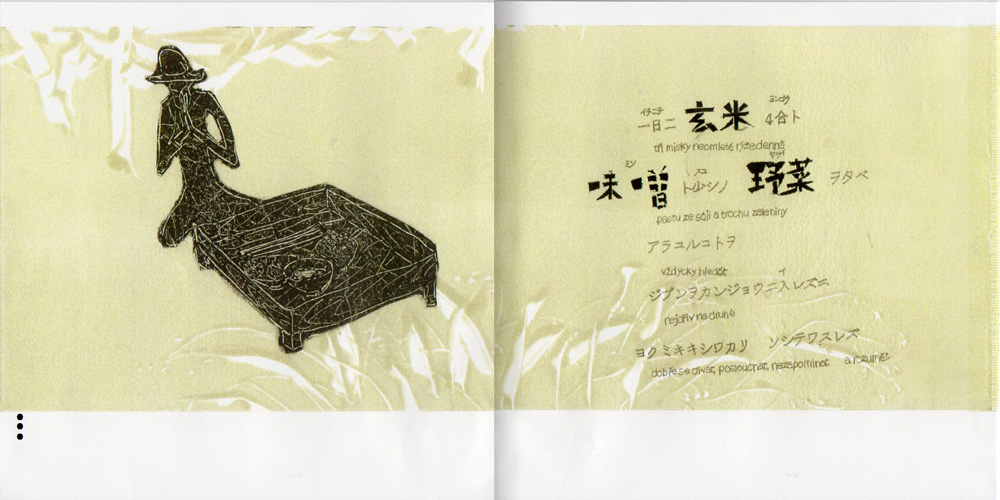 イチニチ ヨンゴウ
一日二 玄米 4合ト
tři misky neomleté rýže denně
ミソ スコ ヤサイ
味噌 ト少シノ 野菜 ヲタベ
pastu ze sóji a trochu zeleniny
アラユルコトヲ
vždycky hledět
イ
ジブンヲカンジョウニ入レズニ
nejdřív na druhé
ヨクミキキシワカリ ソシテワスレズ
dobře se dívat, poslouchat, nezapomínat a rozumět